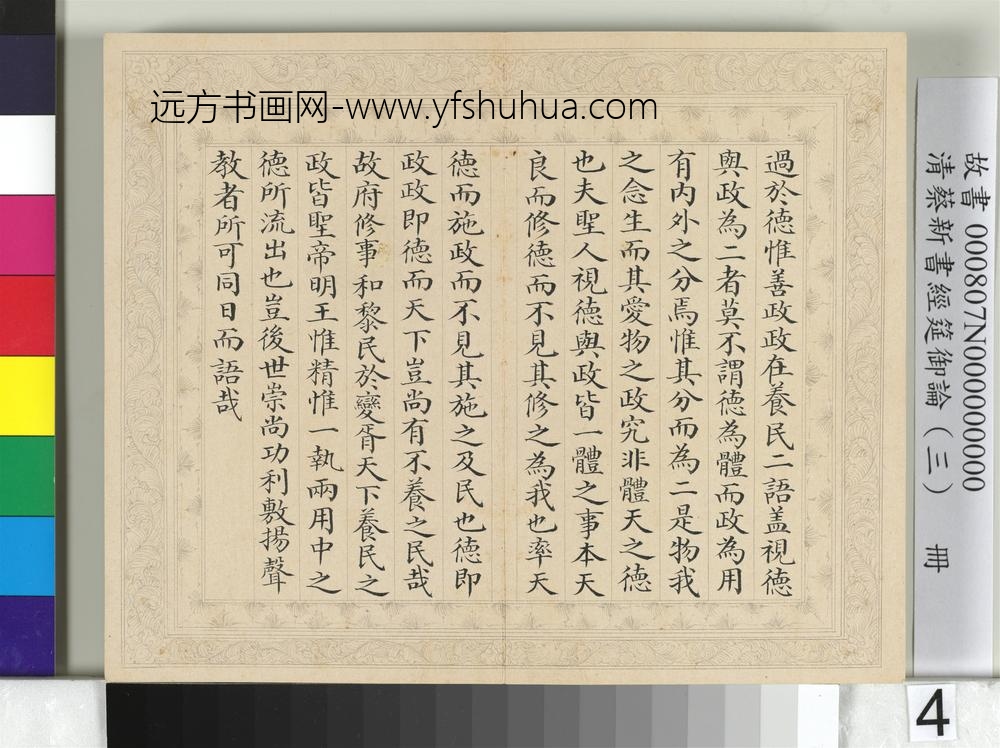 远方书画网-www.yfshuhua.com
過於德惟善政政在養民二語盖視德
與政為二者莫不謂德為體而政為用
有内外之分焉惟其分而為二是物我
之念生而其愛物之政究非體天之德
也夫聖人視德與政皆一體之事本天
良而修德而不見其修之為我也率天
德而施政而不見其施之及民也德即
政政即德而天下豈尚有不養之民哉
故府修事和黎民於變胥天下養民之
政皆聖帝明王惟精惟一執兩用中之
德所流出也豈後世崇尚功利敷揚聲
教者所可同日而語哉
故書 000807N000000000
清蔡新書經筵御論（三） 冊
4